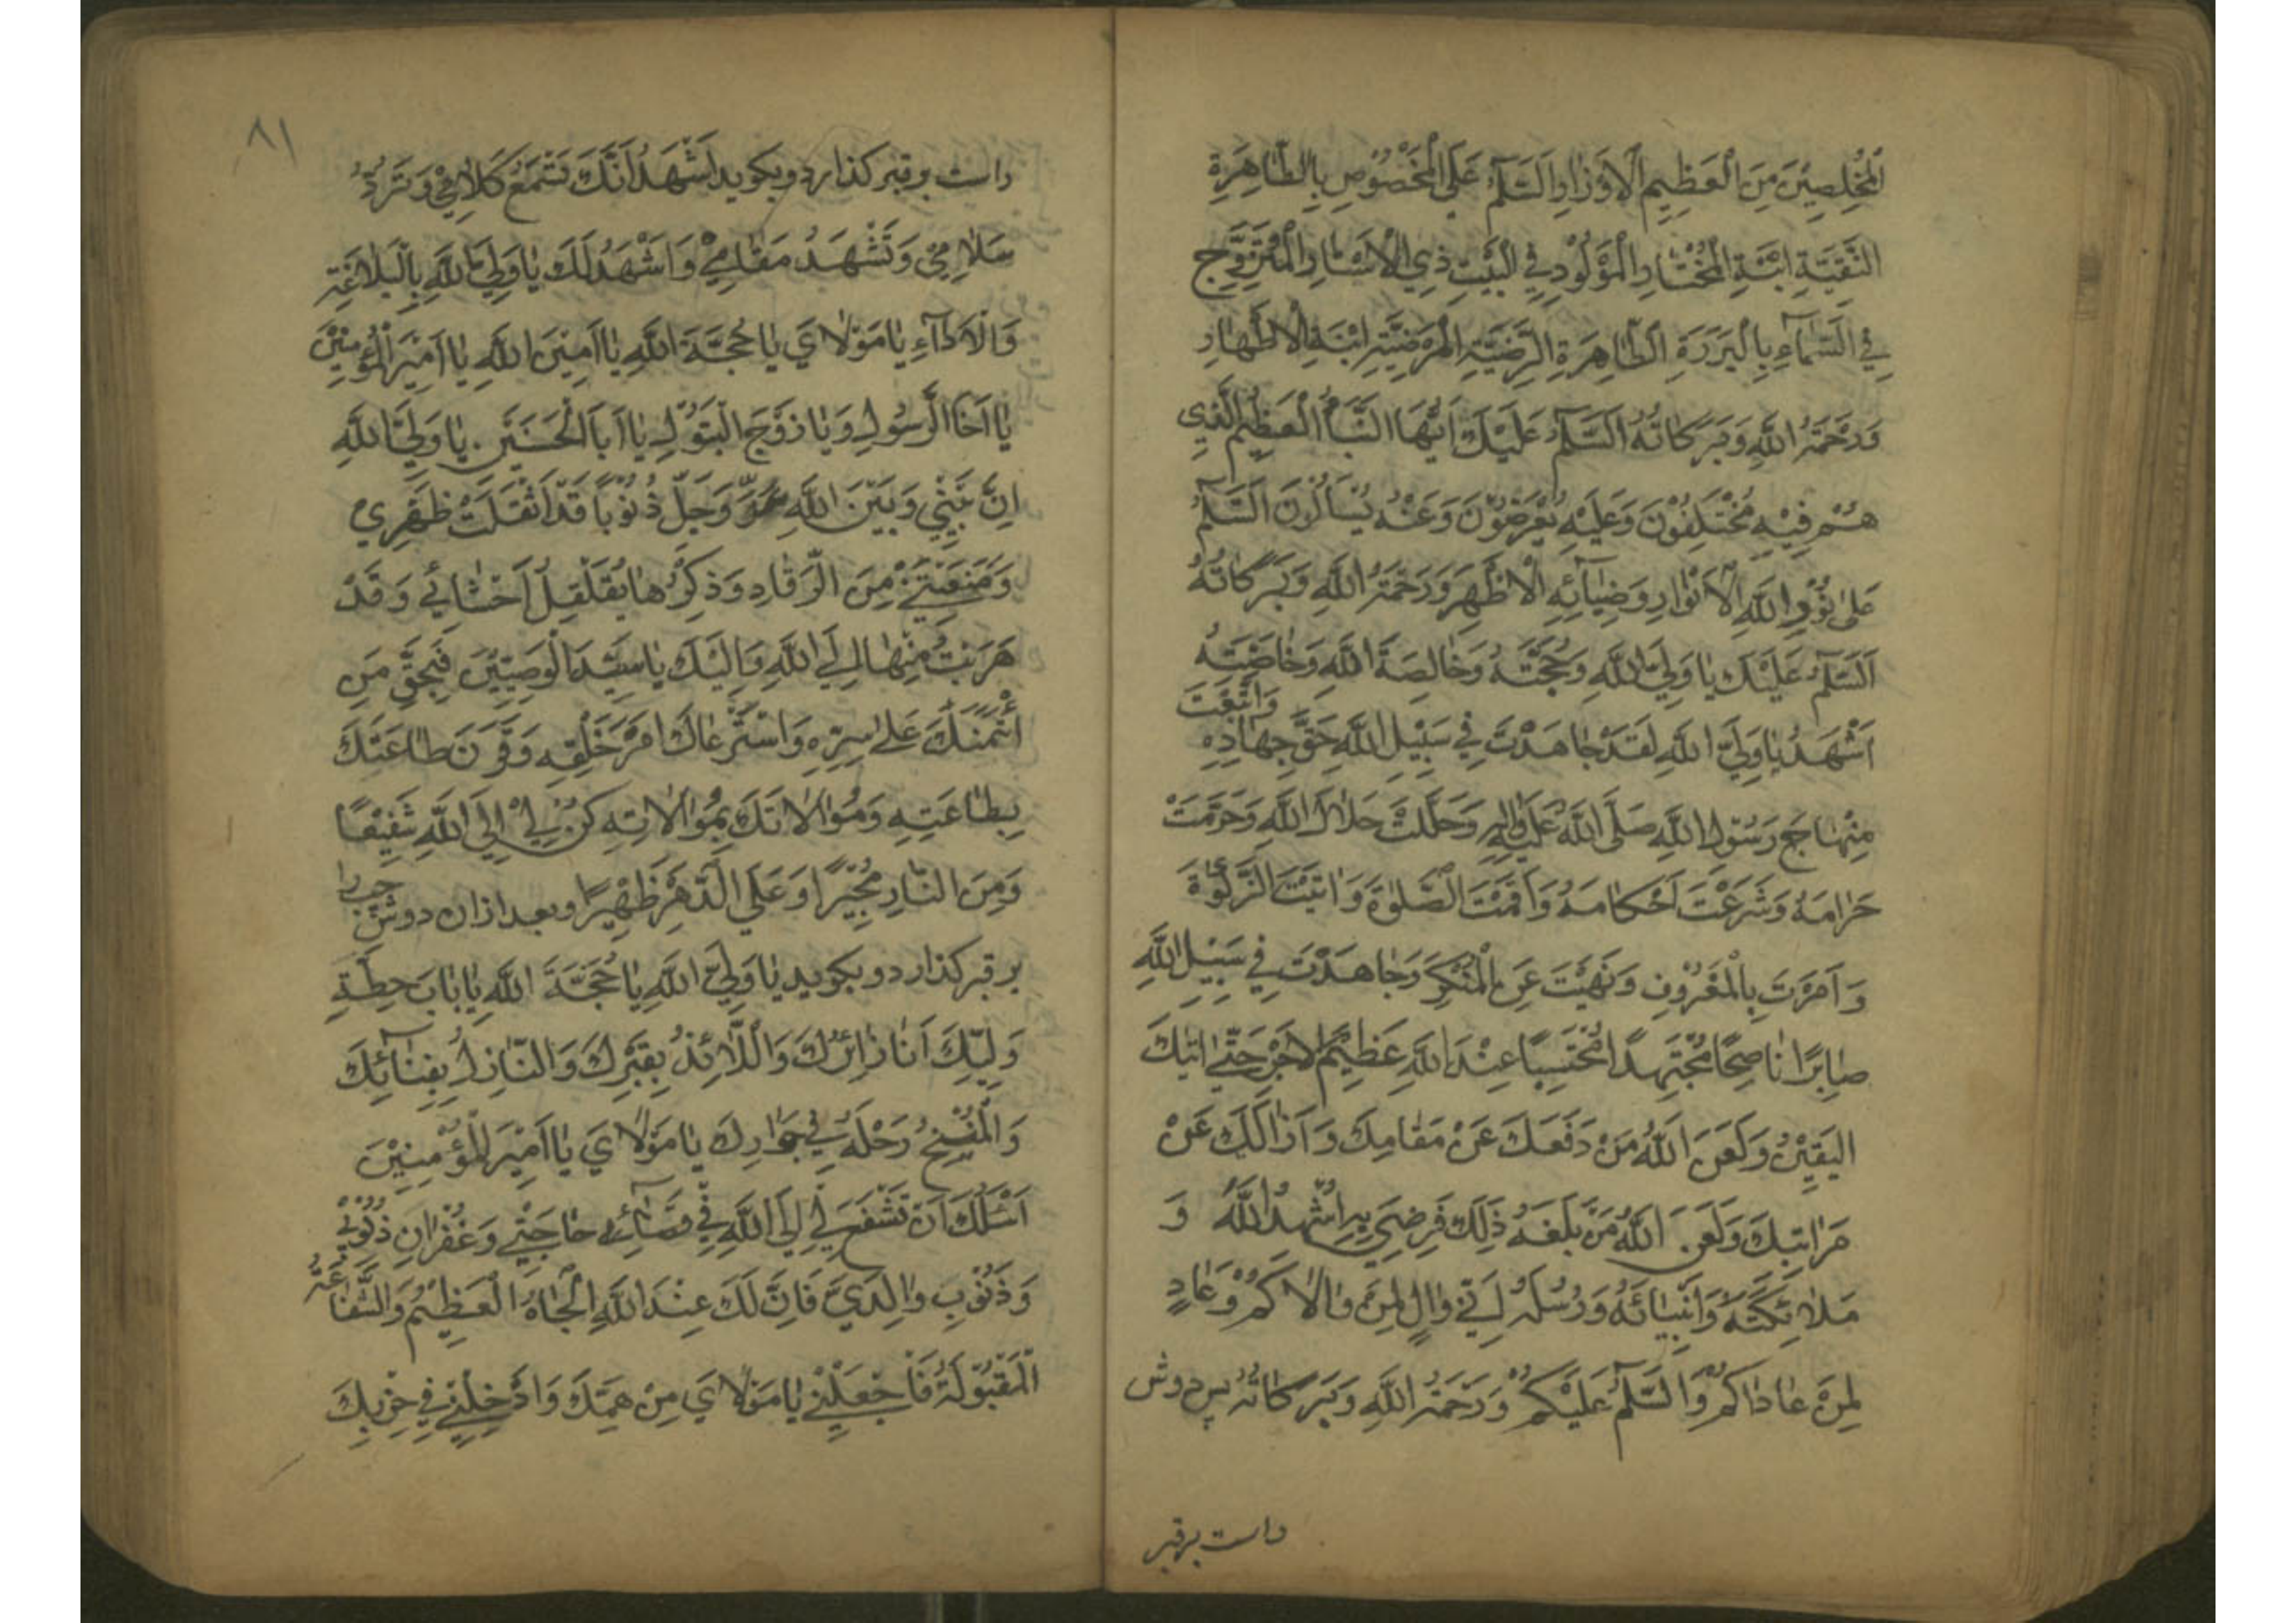 الْمُخْلِصِيْنَ مِنَ الْعَظِيمِ الْاَوْزَارِ اَلسَّلٰمُ عَلَى الْمَخْصُوْصِ بِالطَّاهِرَةِ
التَّقِيَّةِ ابْنَةِ الْمُخْتَارِ الْمَوْلُوْدِ فِي الْبَيْتِ ذِي الْاَسْتَارِ الْمُتَزَوِّجِ
فِي السَّمَآءِ بِالْبَرَرَةِ الطَّاهِرَةِ الرَّضِيَّةِ الْمَرْضِيَّةِ ابْنَةِ الْاَطْهَارِ
وَرَحْمَةُ اللهِ وَبَرَكَاتُهُ اَلسَّلٰمُ عَلَيْكَ اَيُّهَا النَّبَأُ الْعَظِيْمُ الَّذِي
هُمْ فِيْهِ مُخْتَلِفُوْنَ وَعَلَيْهِ يُعْرَضُوْنَ وَعَنْهُ يُسْاَلُوْنَ اَلسَّلٰمُ
عَلٰى نُوْرِ اللهِ الْاَنْوَارِ وَضِيَآئِهِ الْاَظْهَرِ وَرَحْمَةُ اللهِ وَبَرَكَاتُهُ
اَلسَّلٰمُ عَلَيْكَ يَا وَلِيَّ اللهِ وَحُجَّتَهُ وَخَالِصَةَ اللهِ وَخَاصَّتِهِ
اَشْهَدُ يَا وَلِيَّ اللهِ لَقَدْ جَاهَدْتَ فِي سَبِيْلِ اللهِ حَقَّ جِهَادِهِ وَاتَّبَعْتَ
مِنْهَاجَ رَسُوْلِ اللهِ صَلَّى اللهُ عَلَيْهِ وَاٰلِهِ وَحَلَّلْتَ حَلَالَ اللهِ وَحَرَّمْتَ
حَرَامَهُ وَشَرَعْتَ اَحْكَامَهُ وَاَقَمْتَ الصَّلٰوةَ وَاٰتَيْتَ الزَّكٰوةَ
وَاَمَرْتَ بِالْمَعْرُوْفِ وَنَهَيْتَ عَنِ الْمُنْكَرِ وَجَاهَدْتَ فِي سَبِيْلِ اللهِ
صَابِرًا نَاصِحًا مُجْتَهِدًا مُحْتَسِبًا عِنْدَ اللهِ عَظِيْمَ الْاَجْرِ حَتّٰى اَتٰيكَ
الْيَقِيْنُ وَلَعَنَ اللهُ مَنْ دَفَعَكَ عَنْ مَقَامِكَ وَاَزَالَكَ عَنْ
مَرَاتِبِكَ وَلَعَنَ اللهُ مَنْ بَلَغَهُ ذٰلِكَ فَرَضِيَ بِهِ اُشْهِدُ اللهَ وَ
مَلَائِكَتَهُ وَاَنْبِيَائَهُ وَرُسُلَهُ اَنِّي وَالٍ لِمَنْ وَالَاكُمْ وَعَادٍ
لِمَنْ عَادَاكُمْ وَالسَّلٰمُ عَلَيْكُمْ وَرَحْمَةُ اللهِ وَبَرَكَاتُهُ پس دوش
راست برقبر
۸۱
راست برقبر كذارد و بكويد اَشْهَدُ اَنَّكَ تَسْمَعُ كَلَامِيْ وَتَرُدُّ
سَلَامِيْ وَتَشْهَدُ مَقَامِيْ وَاَشْهَدُ لَكَ يَا وَلِيَّ اللهِ بِالْبَلَاغَةِ
وَالْاَدَآءِ يَا مَوْلَايَ يَا حُجَّةَ اللهِ يَا اَمِيْنَ اللهِ يَا اَمِيْرَ الْمُؤْمِنِيْنَ
يَا اَخَا الرَّسُوْلِ وَيَا زَوْجَ الْبَتُوْلِ يَا اَبَا الْحَسَنَيْنِ يَا وَلِيَّ اللهِ
اِنَّ بَيْنِي وَبَيْنَ اللهِ عَزَّ وَجَلَّ ذُنُوْبًا قَدْ اَثْقَلَتْ ظَهْرِي
وَمَنَعَتْنِيْ مِنَ الرُّقَادِ وَذِكْرُهَا يُقَلْقِلُ اَحْشَائِي وَقَدْ
هَرَبْتُ مِنْهَا اِلَى اللهِ وَاِلَيْكَ يَا سَيِّدَ الْوَصِيِّيْنَ فَبِحَقِّ مَنِ
ائْتَمَنَكَ عَلٰى سِرِّهِ وَاسْتَرْعَاكَ اَمْرَ خَلْقِهِ وَقَرَنَ طَاعَتَكَ
بِطَاعَتِهِ وَمُوَالَاتَكَ بِمُوَالَاتِهِ كُنْ لِيْ اِلَى اللهِ شَفِيْعًا
وَمِنَ النَّارِ مُجِيْرًا وَعَلَى الدَّهْرِ ظَهِيْرًا وبعد ازان دوش چپ را
بر قبر كذارد و بكويد يَا وَلِيَّ اللهِ يَا حُجَّةَ اللهِ يَا بَابَ حِطَّةِ
وَلِيُّكَ اَنَا زَائِرُكَ وَاللَّائِذُ بِقَبْرِكَ وَالنَّازِلُ بِفِنَائِكَ
وَالْمُنِيْخُ رَحْلَهُ فِي جِوَارِكَ يَا مَوْلَايَ يَا اَمِيْرَ الْمُؤْمِنِيْنَ
اَسْئَلُكَ اَنْ تَشْفَعَ لِي اِلَى اللهِ فِي قَضَآئِ حَاجَتِي وَغُفْرَانِ ذُنُوْبِيْ
وَذُنُوْبِ وَالِدَيَّ فَاِنَّ لَكَ عِنْدَ اللهِ الْجَاهُ الْعَظِيْمُ وَالشَّفَاعَةُ
الْمَقْبُوْلَةُ فَاجْعَلْنِيْ يَا مَوْلَايَ مِنْ هَمِّكَ وَاَدْخِلْنِيْ فِي حِزْبِكَ